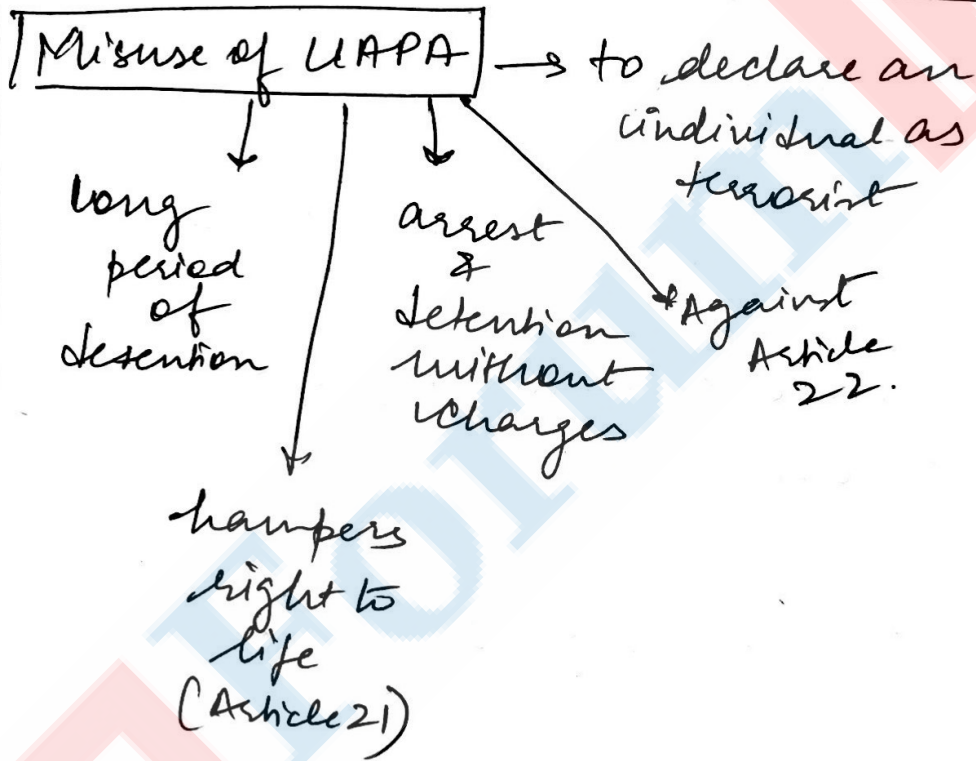 Misuse of UAPA → to declare an
individual as
terrorist
long
period
of
detention
arrest
&
detention
without
charges
Against
Article
22.
hampers
right to
life
(Article 21)
Forum